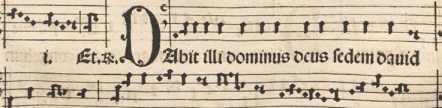 i. Et.℟. DAbit illi dominus deus sedem dauid